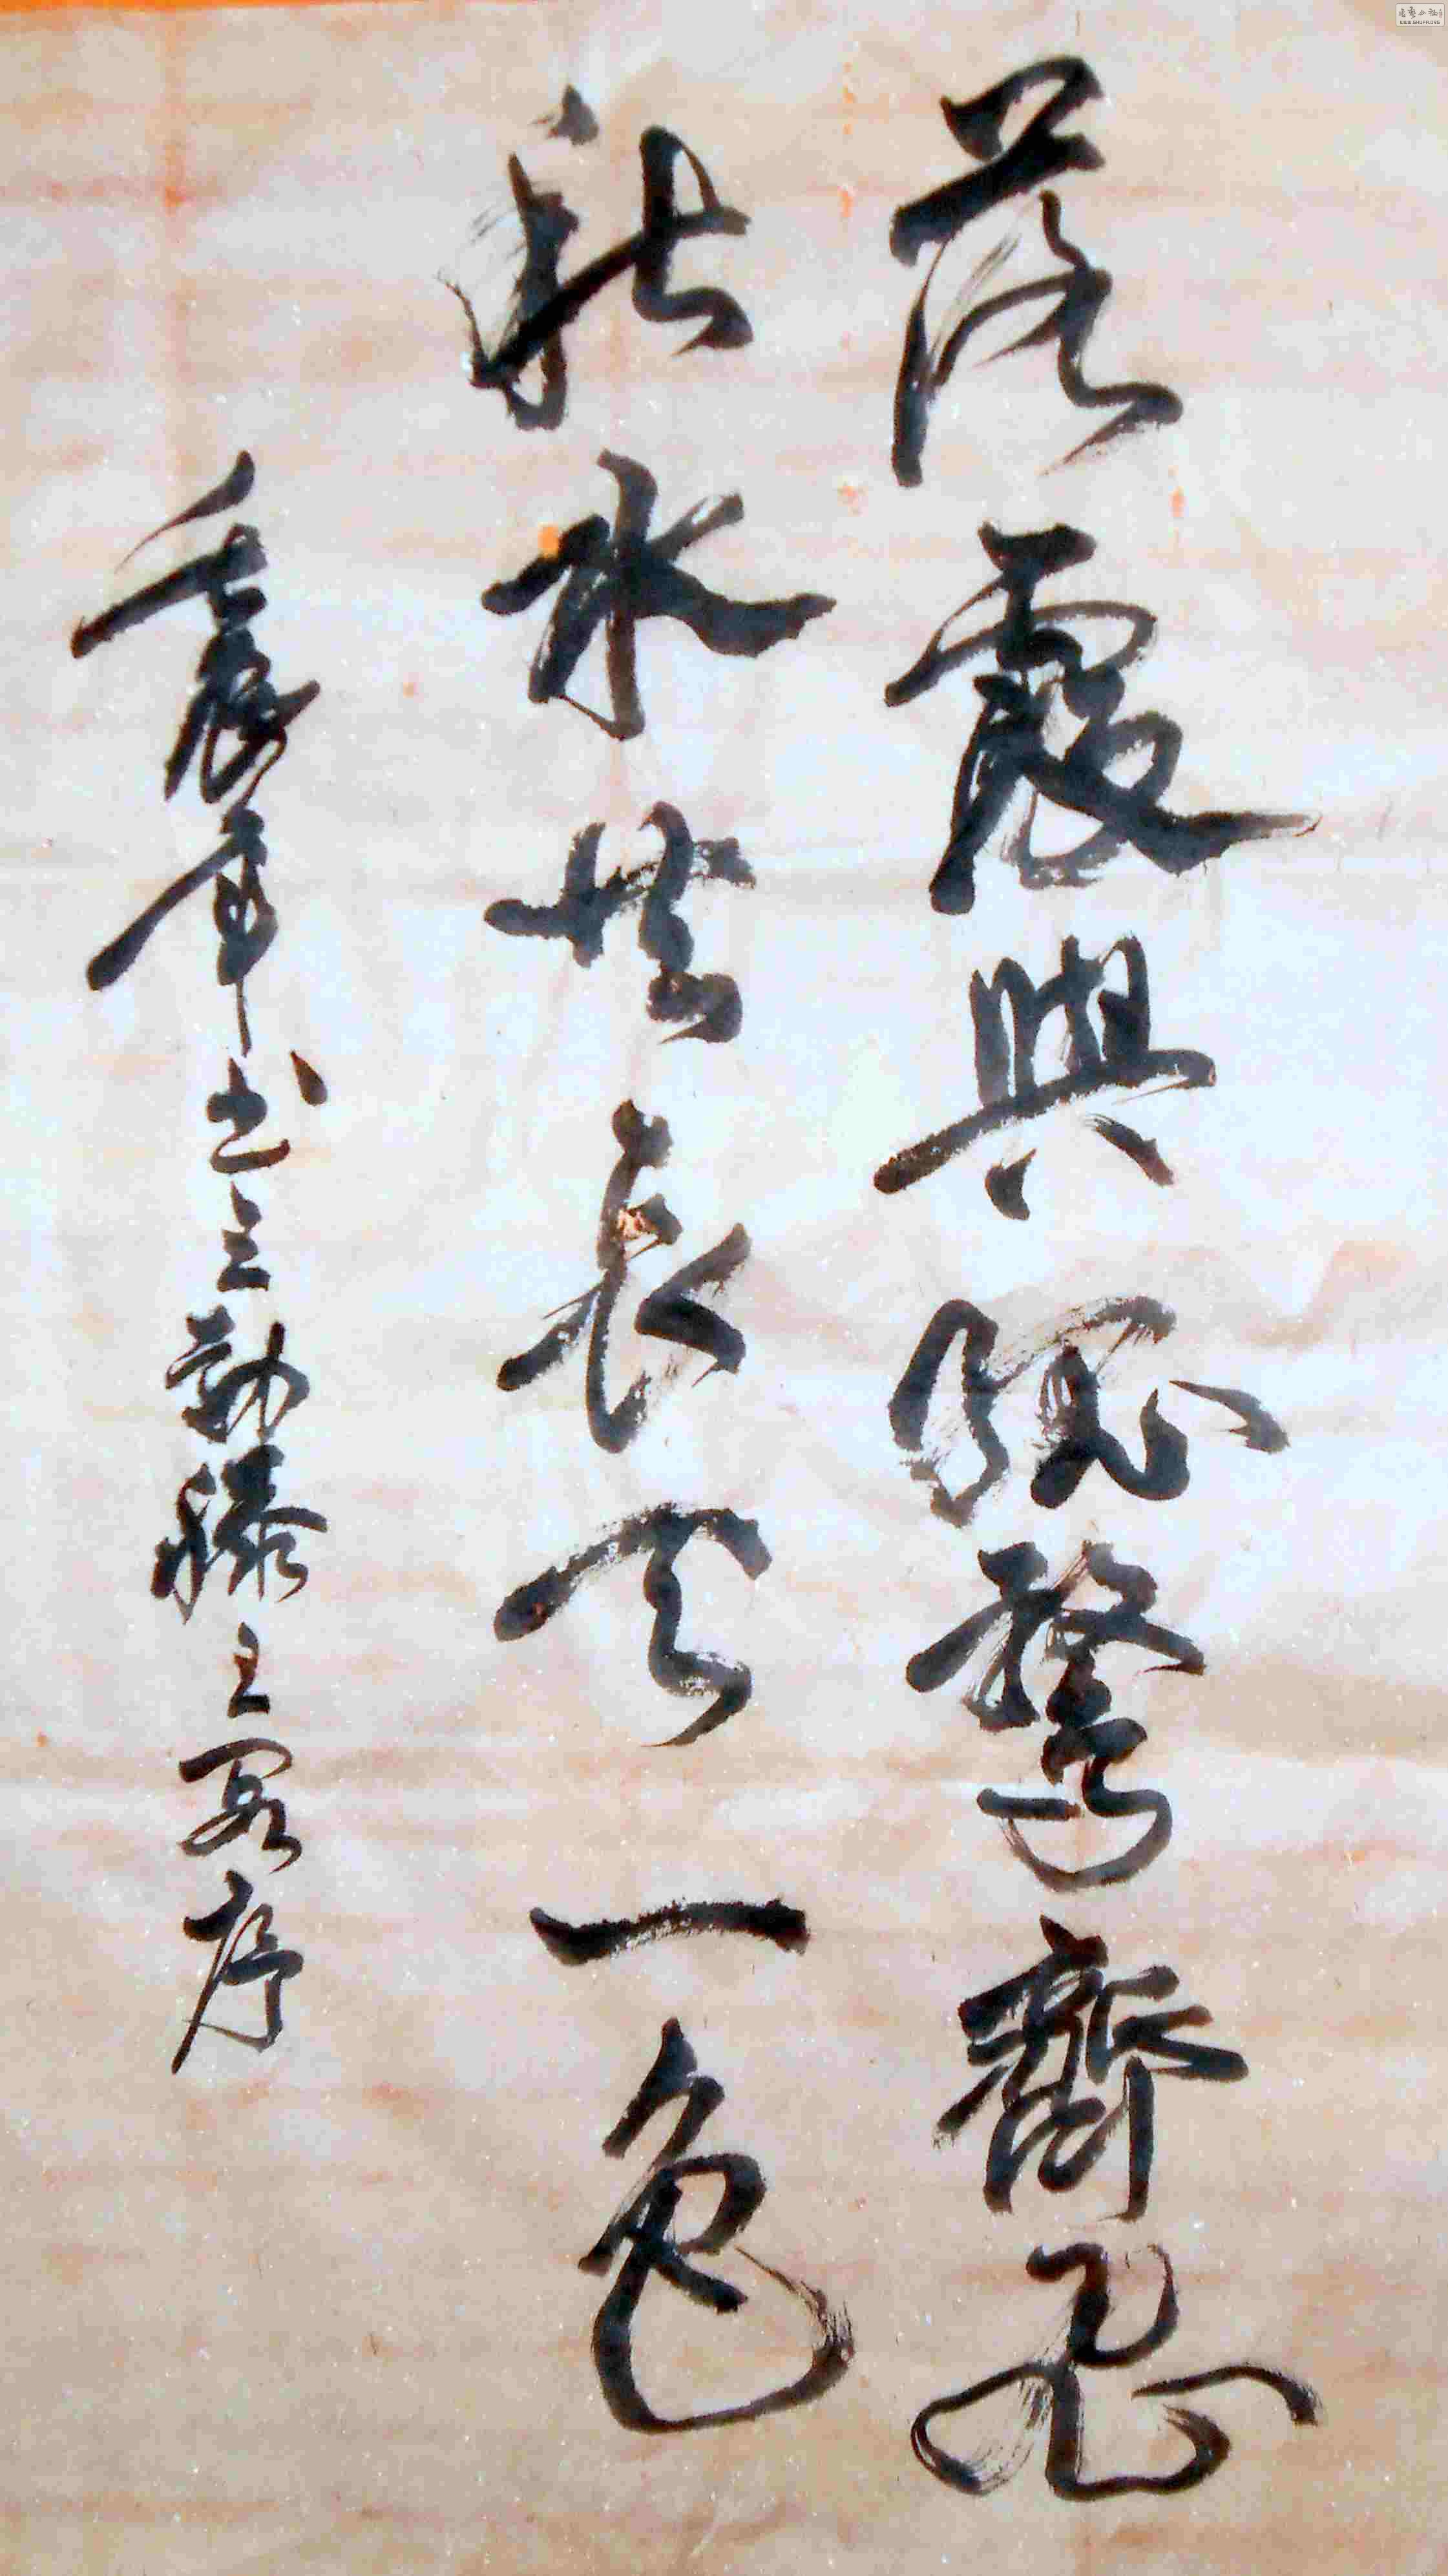 落霞與孤鶩齊飛
秋水共長天一色
壬辰年书王勃滕王阁序